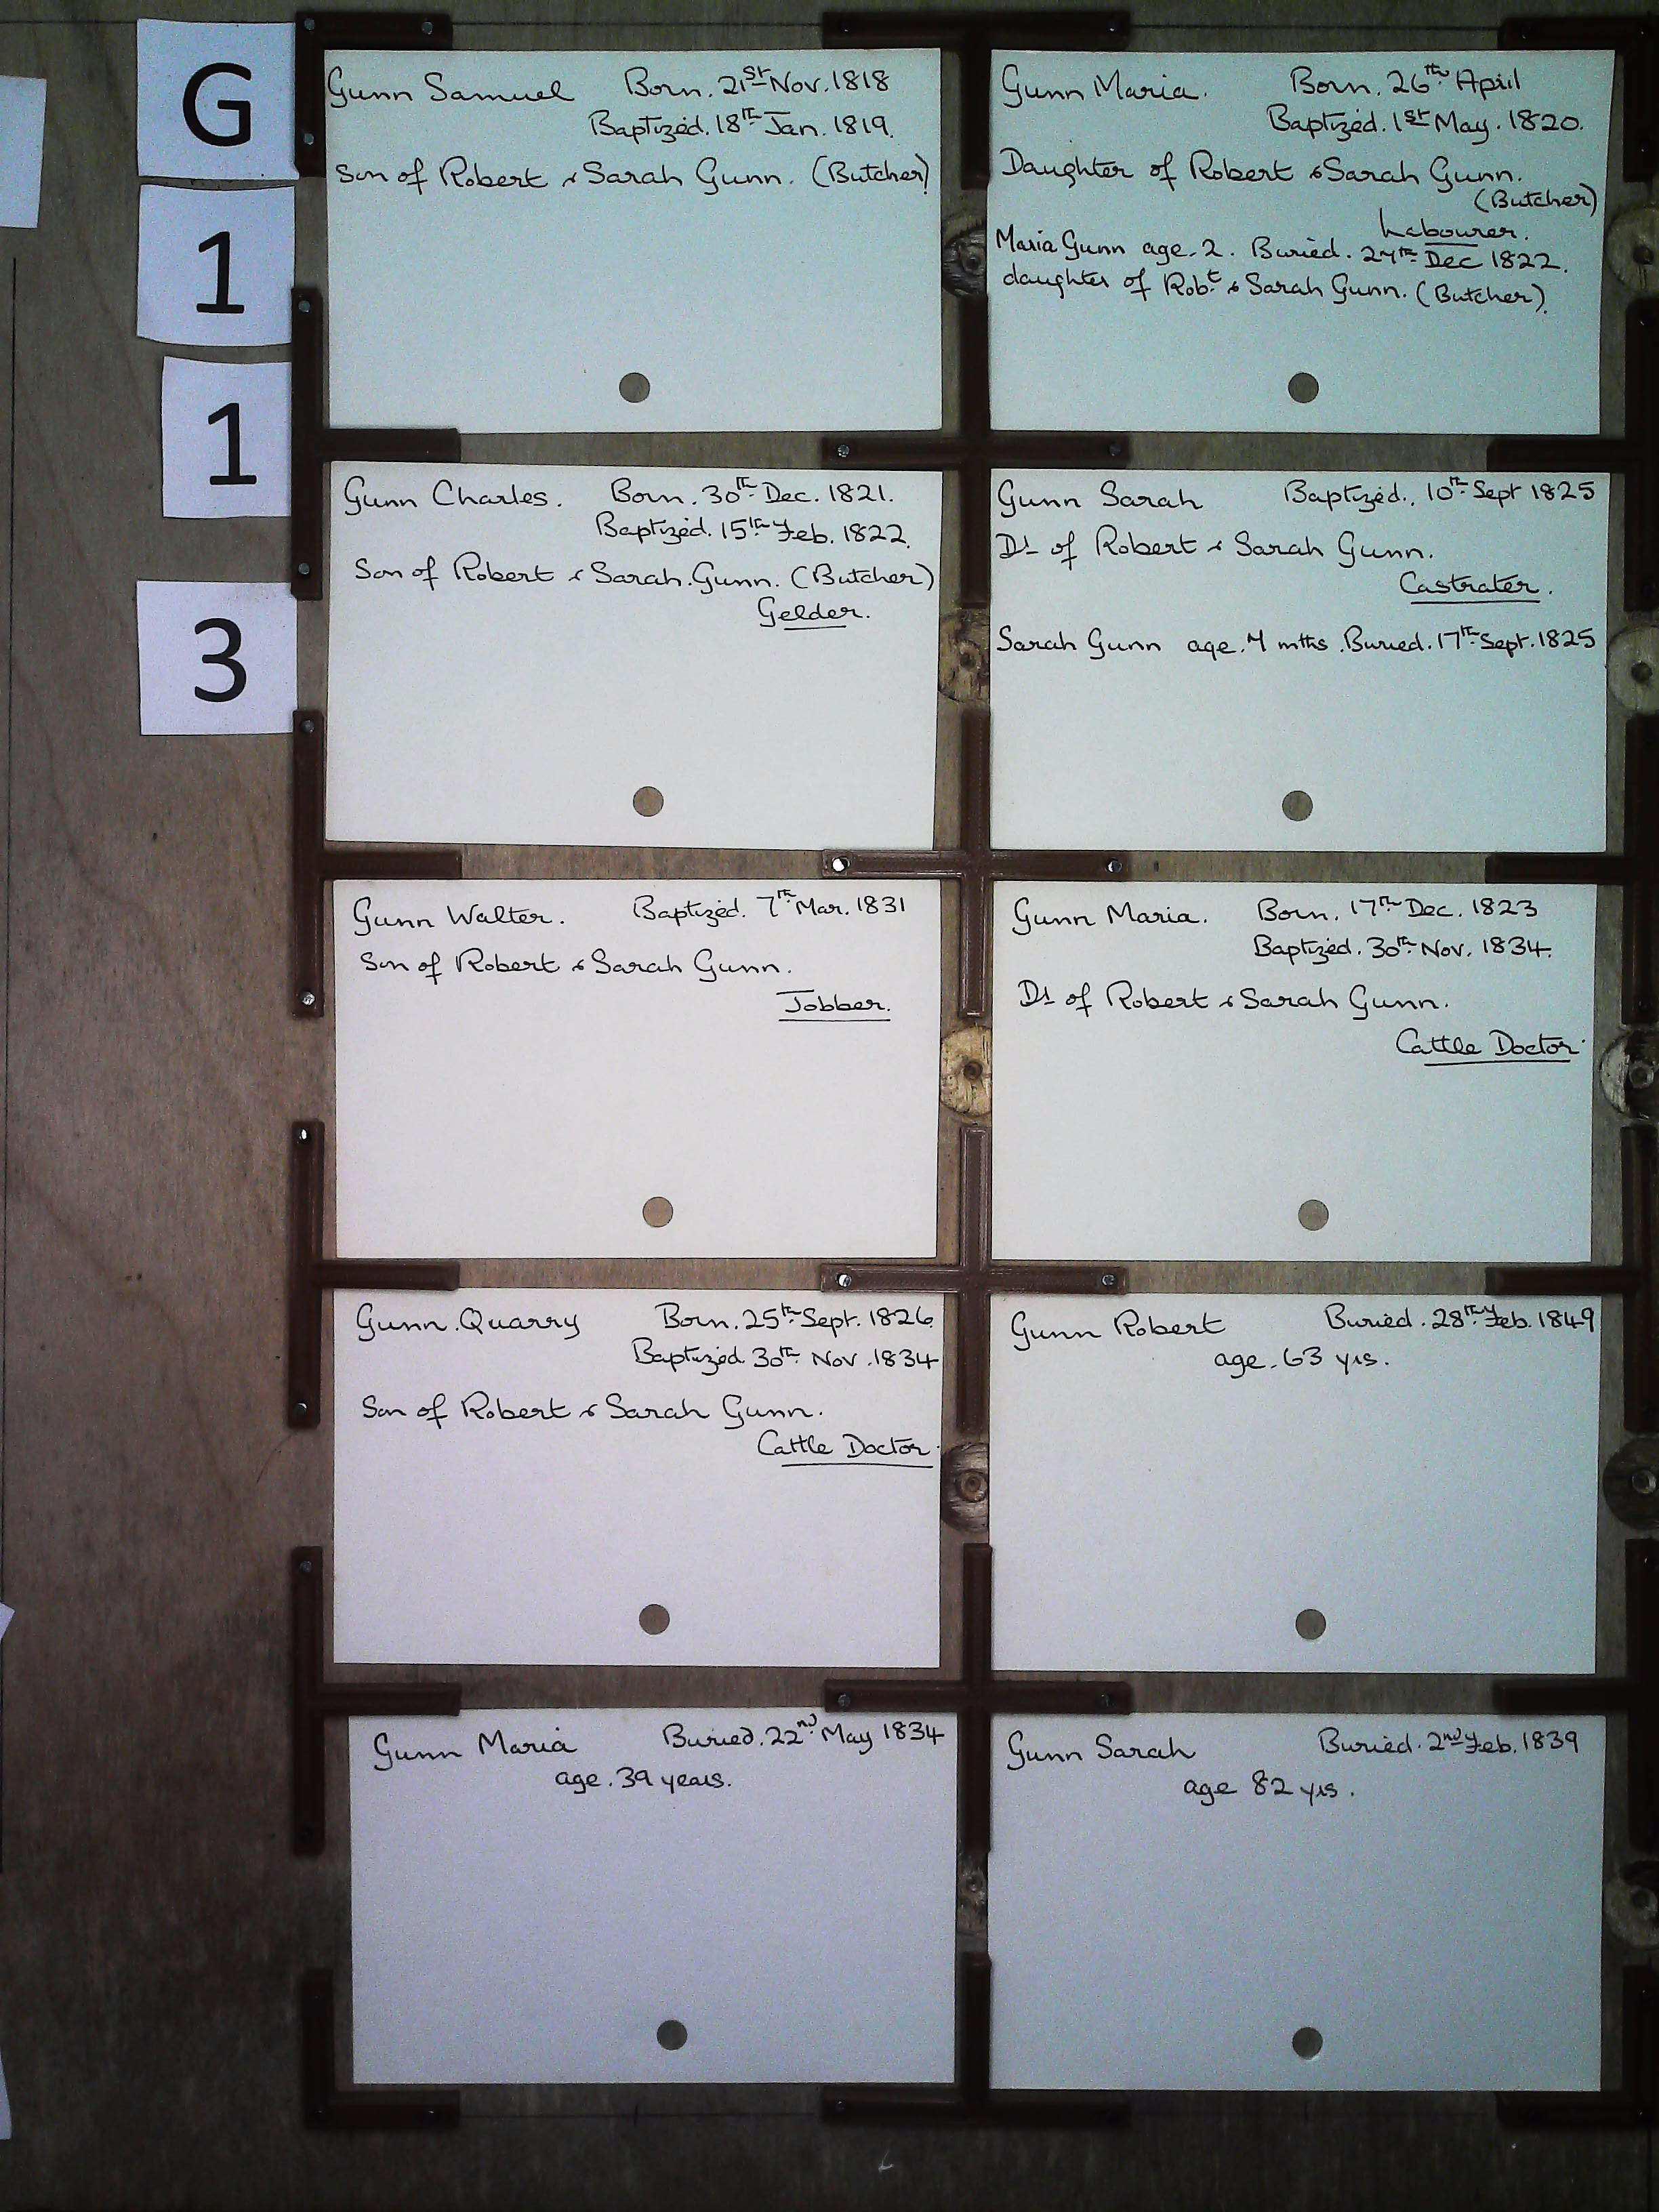 G
1
1
3
Gunn Samuel Born. 21st Nov. 1818
Baptized. 18th Jan. 1819.
Son of Robert & Sarah Gunn. (Butcher)
Gunn Maria. Born. 26th April
Baptized. 1st May. 1820.
Daughter of Robert & Sarah Gunn.
(Butcher)
Labourer.
Maria Gunn age. 2. Buried. 27th Dec 1822.
daughter of Robt & Sarah Gunn. (Butcher).
Gunn Charles. Born. 30th Dec. 1821.
Baptized. 15th Feb. 1822.
Son of Robert & Sarah. Gunn. (Butcher)
Gelder.
Gunn Sarah Baptized. 10th Sept 1825
Dt of Robert & Sarah Gunn.
Castrater.
Sarah Gunn age. 7 mths. Buried. 17th Sept. 1825
Gunn Walter. Baptized. 7th Mar. 1831
Son of Robert & Sarah Gunn.
Jobber.
Gunn Maria. Born. 17th Dec. 1823
Baptized. 30th Nov. 1834.
Dt of Robert & Sarah Gunn.
Cattle Doctor.
Gunn. Quarry Born. 25th Sept. 1826.
Baptized 30th Nov. 1834
Son of Robert & Sarah Gunn.
Cattle Doctor.
Gunn Robert Buried. 28th Feb. 1849
age. 63 yrs.
Gunn Maria Buried. 22nd May 1834
age. 39 years.
Gunn Sarah Buried. 2nd Feb. 1839
age 82 yrs.